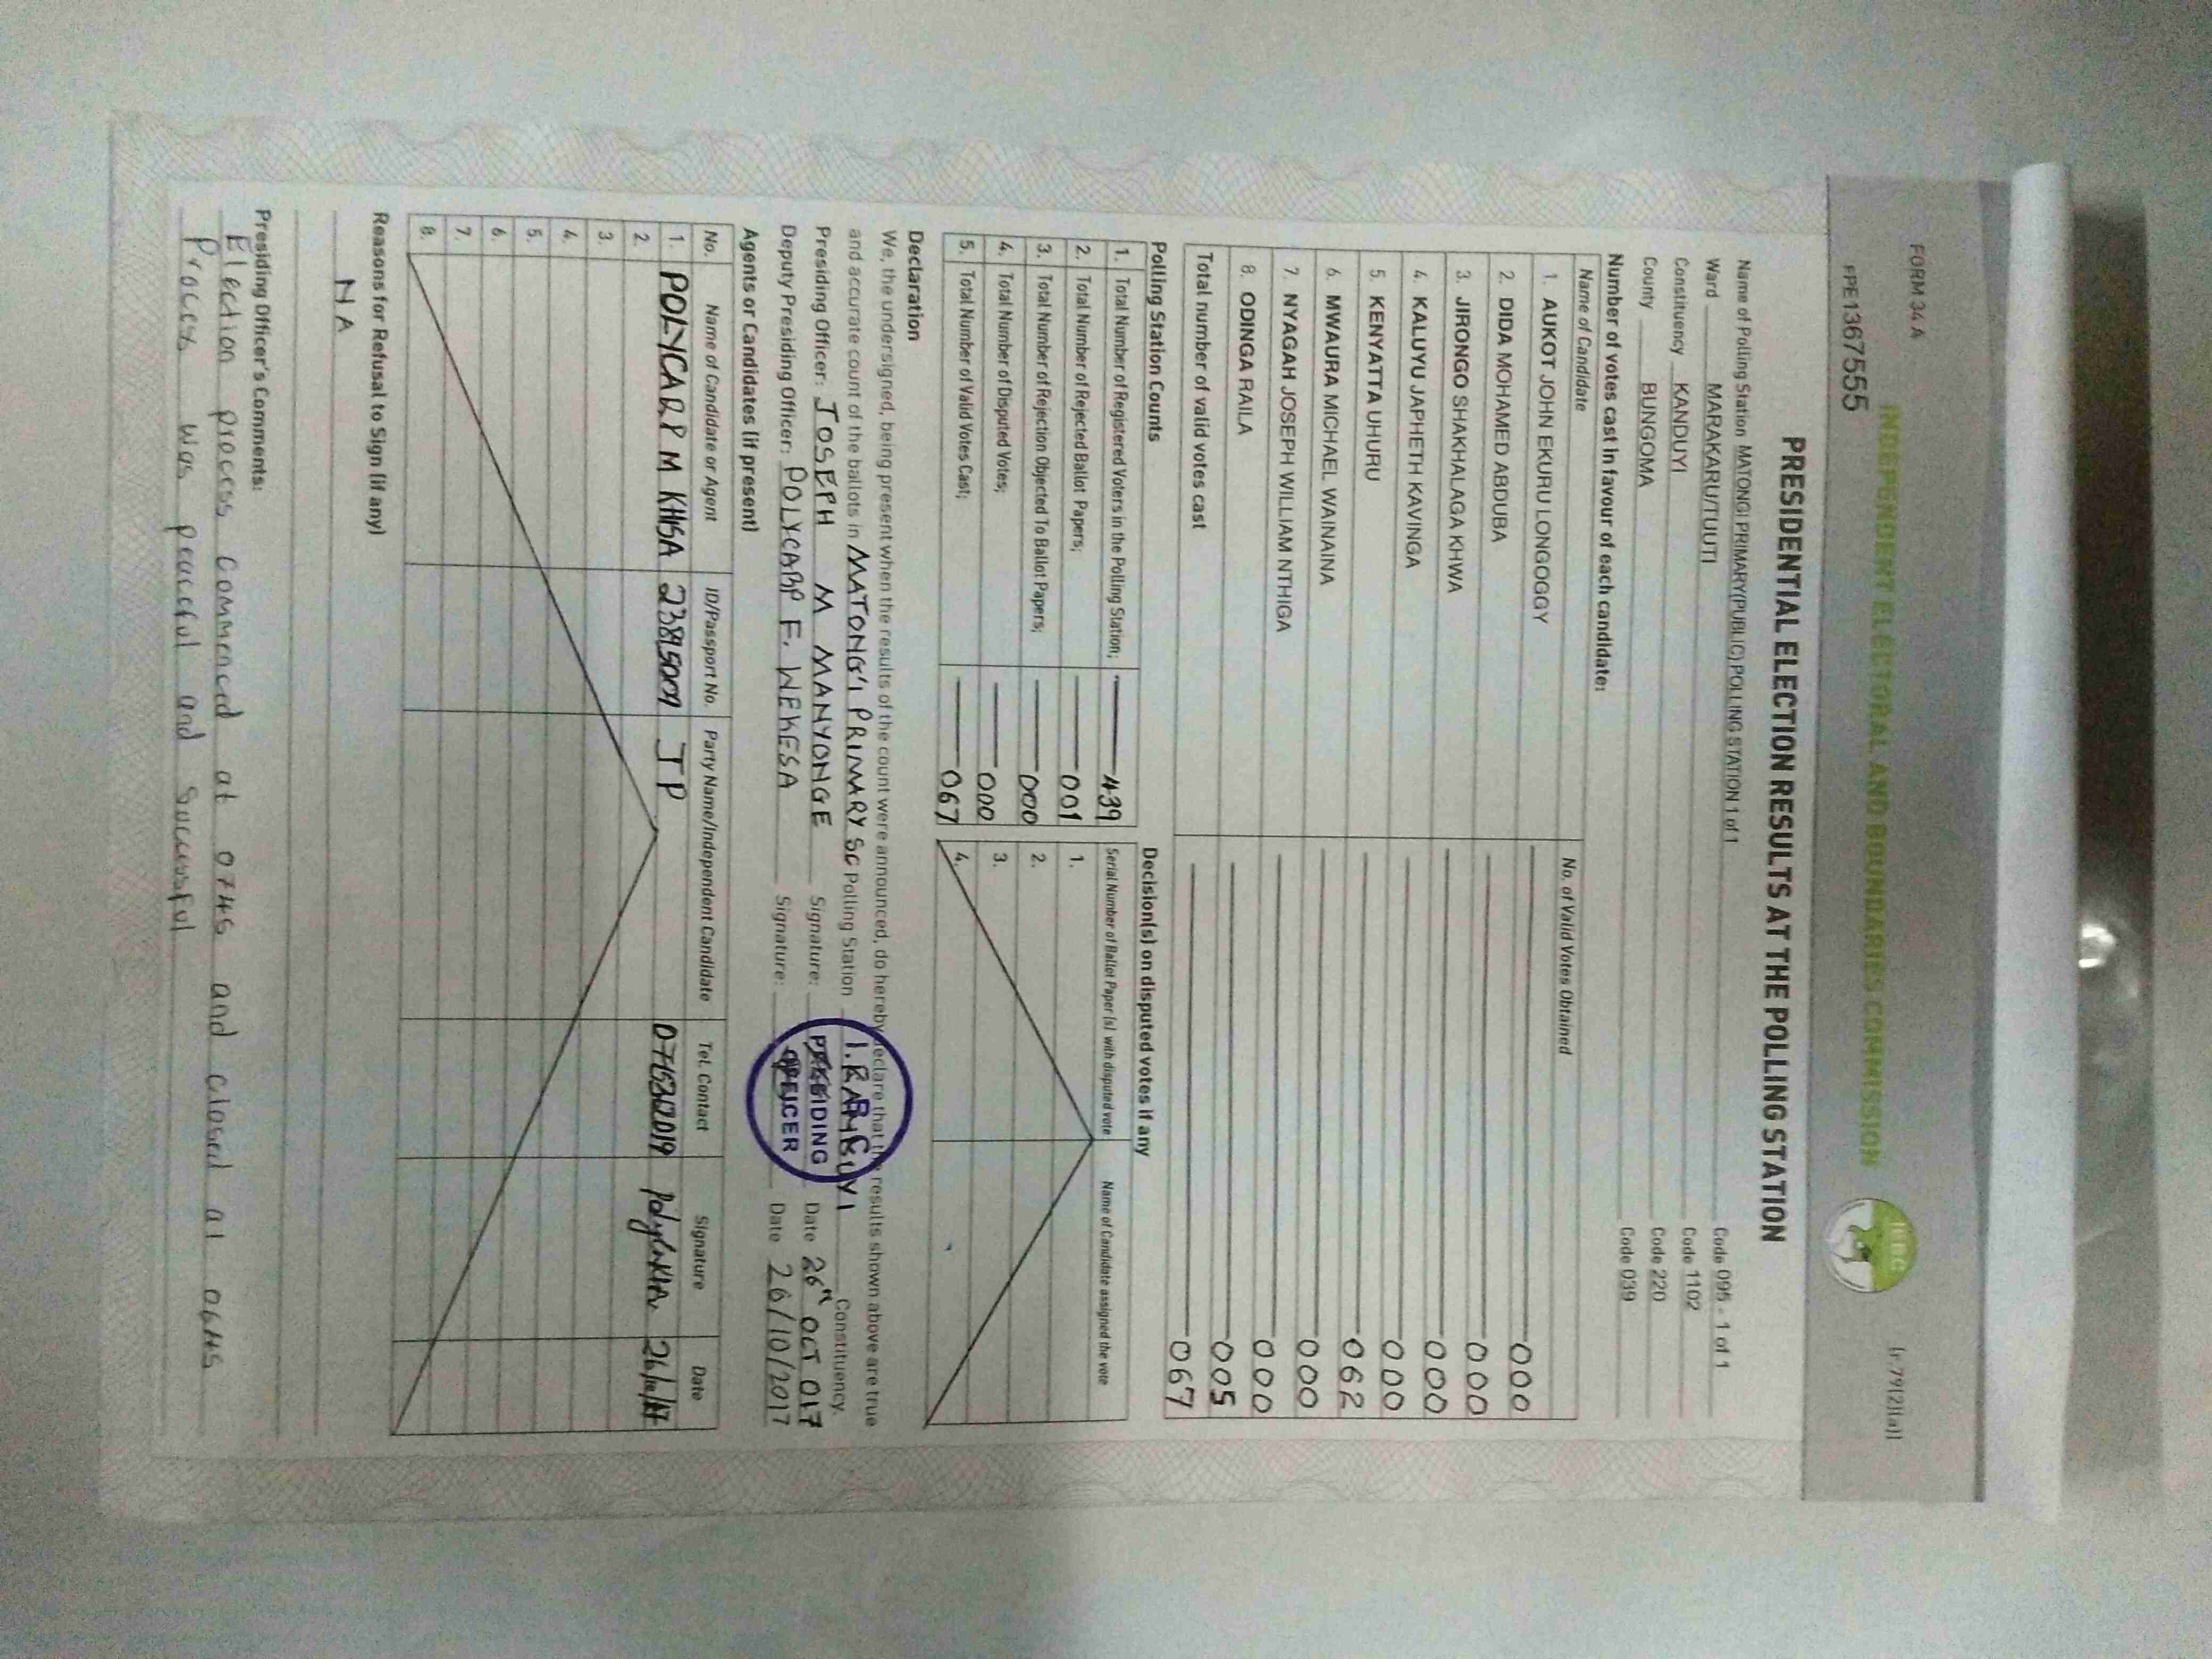 FORM 34 A
[r.79(2)(a)]
INDEPENDENT ELECTORAL AND BOUNDARIES COMMISSION
IEBC
PPE1367555
PRESIDENTIAL ELECTION RESULTS AT THE POLLING STATION
Name of Polling Station MATONGI PRIMARY(PUBLIC) POLLING STATION 1 of 1 Code 095 - 1 of 1
Ward MARAKARU/TUUTI Code 1102
Constituency KANDUYI Code 220
County BUNGOMA Code 039
Number of votes cast in favour of each candidate:
Name of Candidate No. of Valid Votes Obtained
1. AUKOT JOHN EKURU LONGOGGY 000
2. DIDA MOHAMED ABDUBA 000
3. JIRONGO SHAKHALAGA KHWA 000
4. KALUYU JAPHETH KAVINGA 000
5. KENYATTA UHURU 062
6. MWAURA MICHAEL WAINAINA 000
7. NYAGAH JOSEPH WILLIAM NTHIGA 000
8. ODINGA RAILA 005
Total number of valid votes cast 067
Polling Station Counts
1. Total Number of Registered Voters in the Polling Station; 439
2. Total Number of Rejected Ballot Papers; 001
3. Total Number of Rejection Objected To Ballot Papers; 000
4. Total Number of Disputed Votes; 000
5. Total Number of Valid Votes Cast; 067
Decision(s) on disputed votes if any
Serial Number of Ballot Paper (s) with disputed vote Name of Candidate assigned the vote
1.
2.
3.
4.
Declaration
We, the undersigned, being present when the results of the count were announced, do hereby declare that the results shown above are true
and accurate count of the ballots in MATONG'I PRIMARY SC Polling Station Constituency.
Presiding Officer: JOSEPH M MANYONGE Signature: Date 26th OCT 017
Deputy Presiding Officer: POLYCARP F. WEKESA Signature: Date 26/10/2017
PRESIDING
OFFICER
Agents or Candidates (if present)
No. Name of Candidate or Agent ID/Passport No. Party Name/Independent Candidate Tel. Contact Signature Date
1. POLYCARP M KHISA JP 26/10/17
2.
3.
4.
5.
6.
7.
8.
Reasons for Refusal to Sign (if any)
NA
Presiding Officer's Comments:
Election process commenced at 0745 and closed at 0645
Process was peaceful and successful